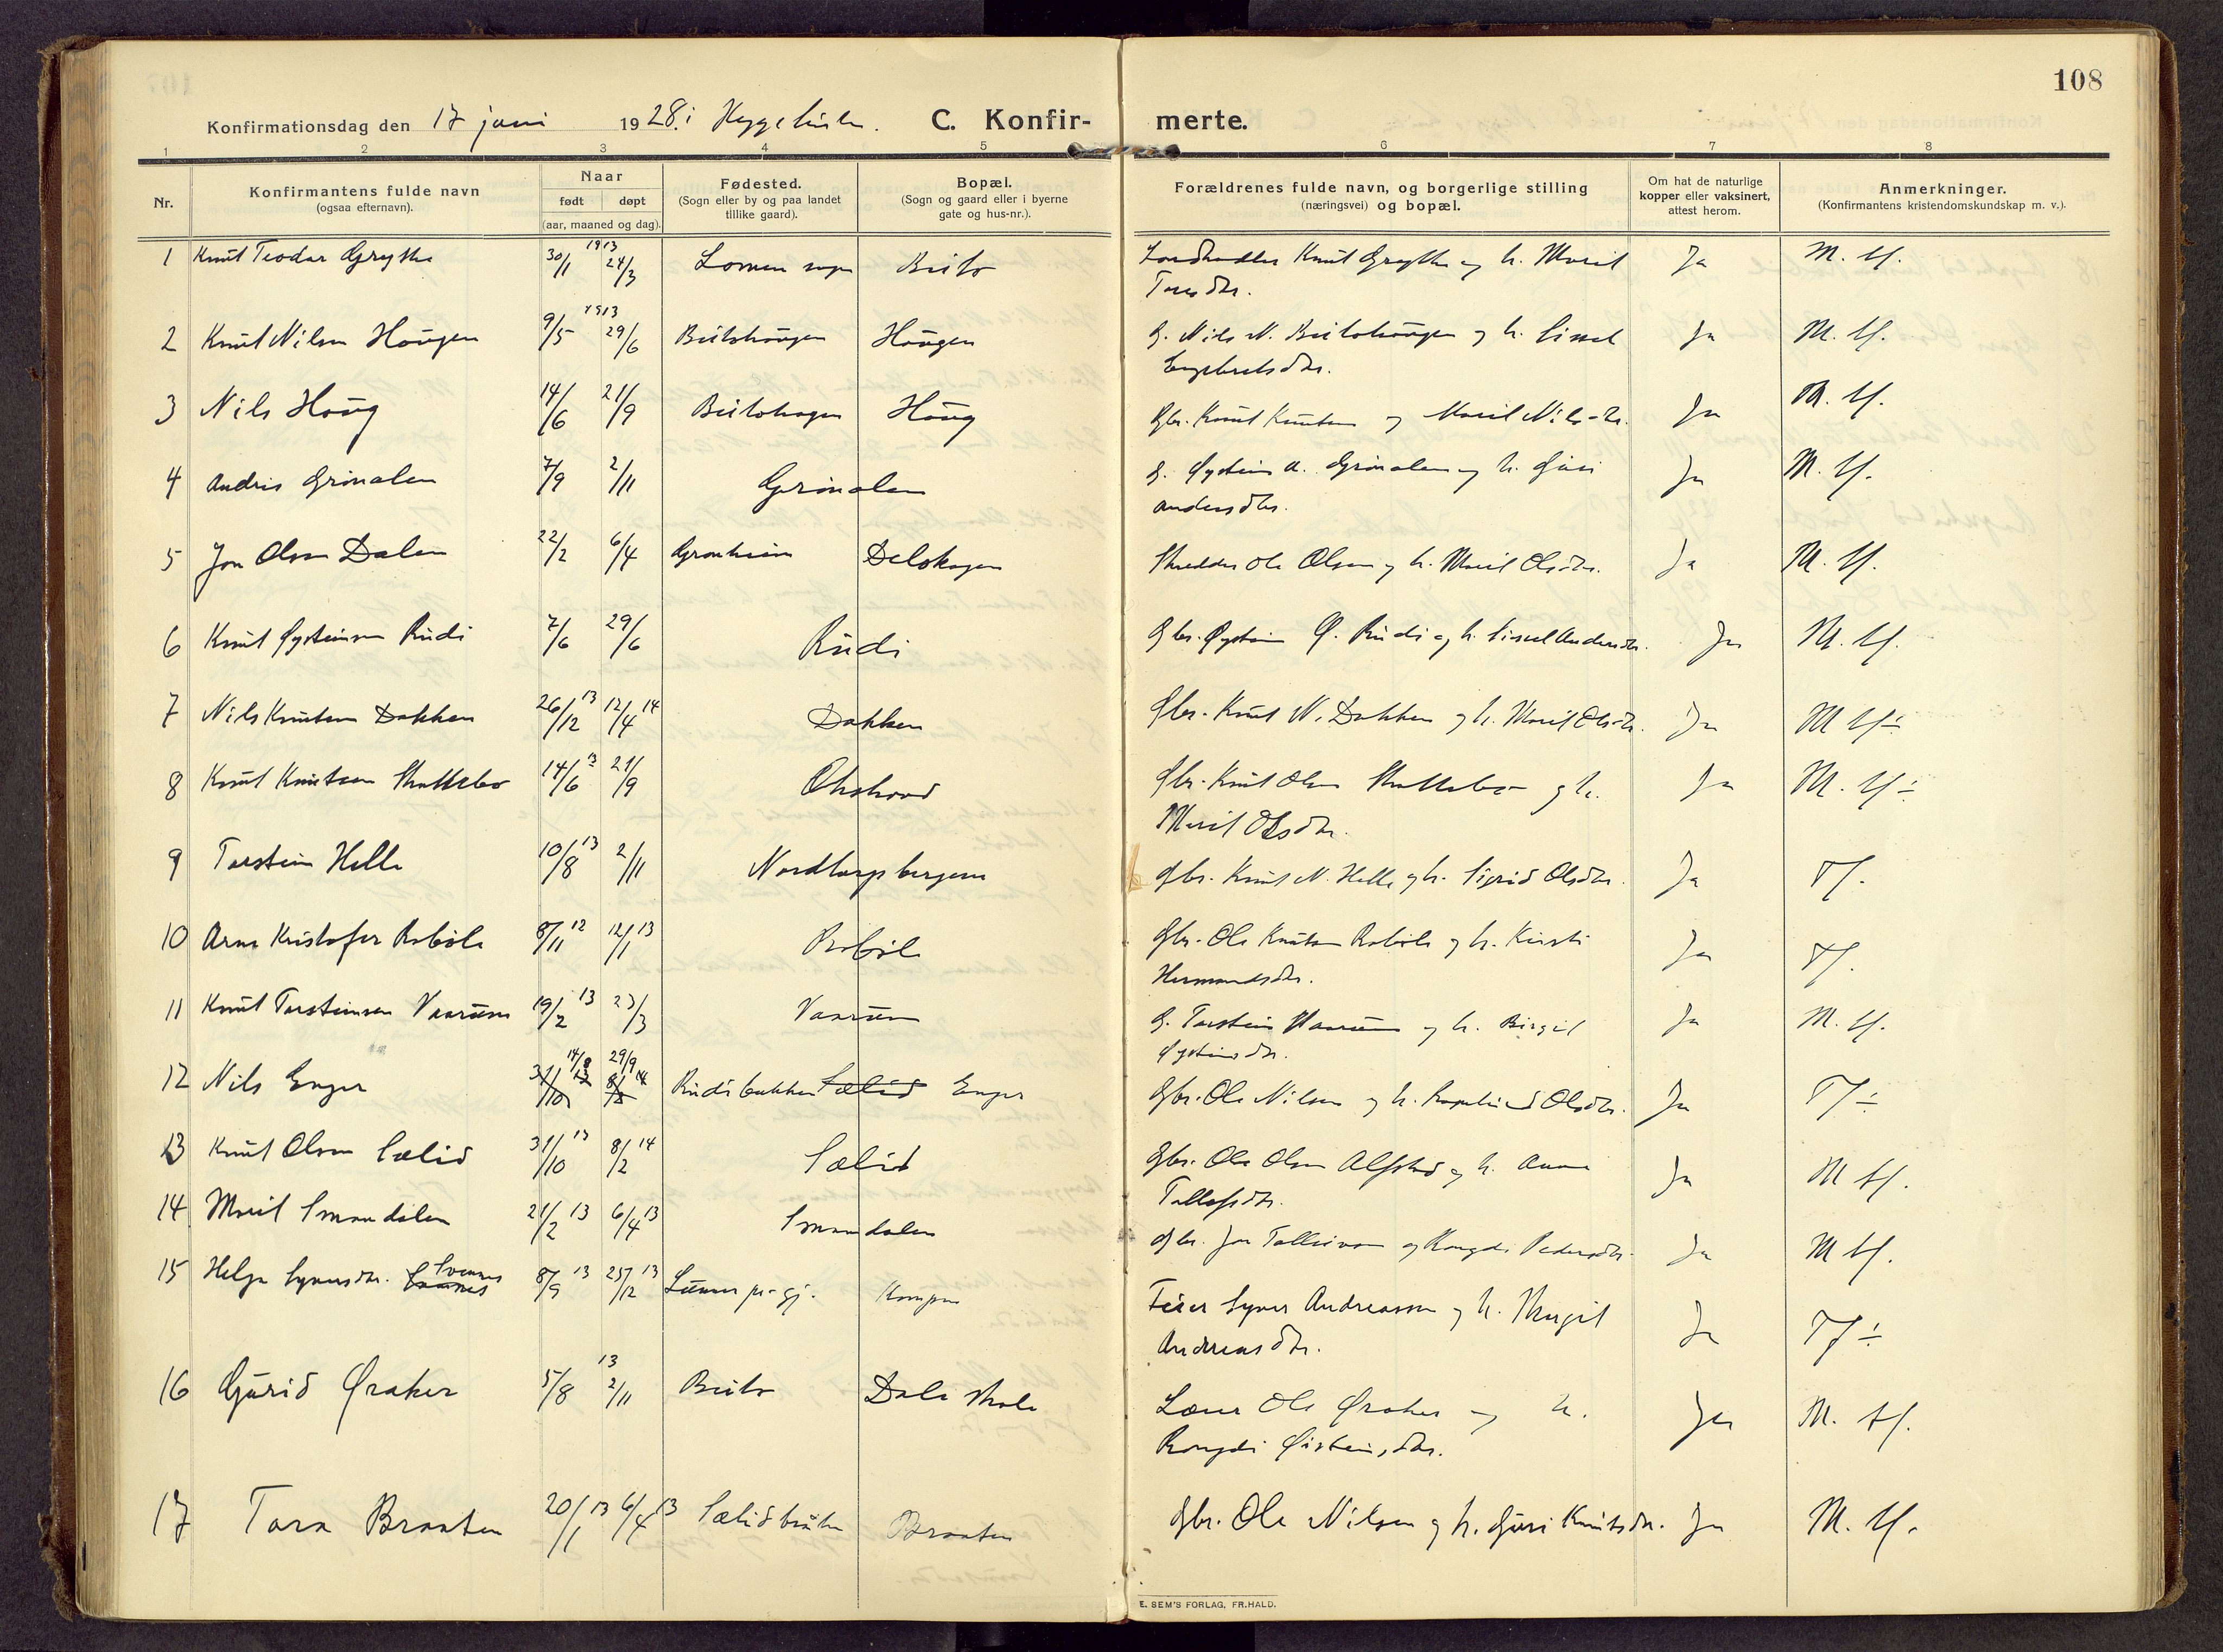 108
Konfirmationsdag den 17 juni 1928. i Heggekirke. C. Konfir- merte.
1 2 3 4 5 6 7 8
Nr. Konfirmantens fulde navn (ogsaa efternavn). Naar født døpt (aar, maaned og dag). Fødested. (Sogn eller by og paa landet tillike gaard). Bopæl. (Sogn og gaard eller i byerne gate og hus-nr.). Forældrenes fulde navn, og borgerlige stilling (næringsvei) og bopæl. Om hat de naturlige kopper eller vaksinert, attest herom. Anmerkninger. (Konfirmantens kristendomskundskap m. v.).
1 Knut Teodor Grythe 30/1 1913 24/3 Lomen sogn Beito Landhandler Knut Grythe og h. Marit Ja M. tf.
Toresdtr.
2 Knut Nilsen Haugen 9/5 1913 29/6 Beitohaugen Haugen G. Nils N. Beitohaugen og h. Sissel Ja M. tf.
Engebretsdtr.
3 Nils Haug 14/6 21/9 Beitohaugen Haug Gbr. Knut Knutsen og Marit Nilsdtr. Ja M. tf.
4 Andris Grønolen 7/9 2/11 Grønolen G. Øystein A. Grønolen og h. Guri Ja M. tf.
Andersdtr.
5 Jon Olsen Dalen 22/2 6/4 Grønheim Dalshagen Skredder Ole Olsen og h. Marit Olsdtr. Ja M. tf.
6 Knut Øysteinsen Rudi 7/6 29/6 Rudi Gbr. Øystein Ø. Rudi og h. Sissel Andersdtr. Ja M. tf.
7 Nils Knutsen Dokken 26/12 13 12/4 14 Dokken Gbr. Knut N. Dokken og h. Marit Olsdtr. Ja M tf ÷
8 Knut Knutsen Skattebo 14/6 13 21/9 Gbr. Knut Olsen Skattebo og h. Ja M. tf ÷
Marit Olsdtr.
9 Torstein Helle 10/8 13 2/11 Nordtorpbergene Gbr. Knut N. Helle og h. Sigrid Olsdtr. Ja Tf.
10 Arne Kristofer Robøle 8/11 12 12/1 13 Robøle Gbr. Ole Knutsen Robøle og h. Kirsti Ja Tf.
Hermandsdtr.
11 Knut Torsteinsen Vaarum 19/2 13 23/3 Vaarum G. Torstein Vaarum og h. Birgit Ja M. tf.
Øysteinsdtr.
12 Nils Enger 31/10 13 14/8 8/2 14 29/9 Rudibakken Sælid Enger Gbr. Ole Nilsen og h. Ragnhild Olsdtr. Ja Tf ÷
13 Knut Olsen Sælid 31/10 13 8/2 14 Sælid Gbr. Ole Olsen Alfstad og h. Anne Ja M tf.
Tollefsdtr.
14 Marit Smørdalen 21/2 13 6/4 13 Smørdalen Gbr. Jon Tolleivsen og Rangdi Pedersdtr. Ja M tf.
15 Helga Syversdtr. Svennes 8/9 13 25/12 13 Kompen Feier Syver Andreassen og h. Margit Ja Tf ÷
Andreasdtr.
16 Gurid Øraker 5/8 13 2/11 Beito Dale skole Lærer Ole Øraker og h. Ja M. tf.
Rangdi Øisteinsdtr.
17 Tora Braaten 20/1 13 6/4 13 Sælidbråten Braaten Gbr. Ole Nilsen og h. Guri Knutsdtr. Ja M. tf.
E. SEM'S FORLAG, FR.HALD.